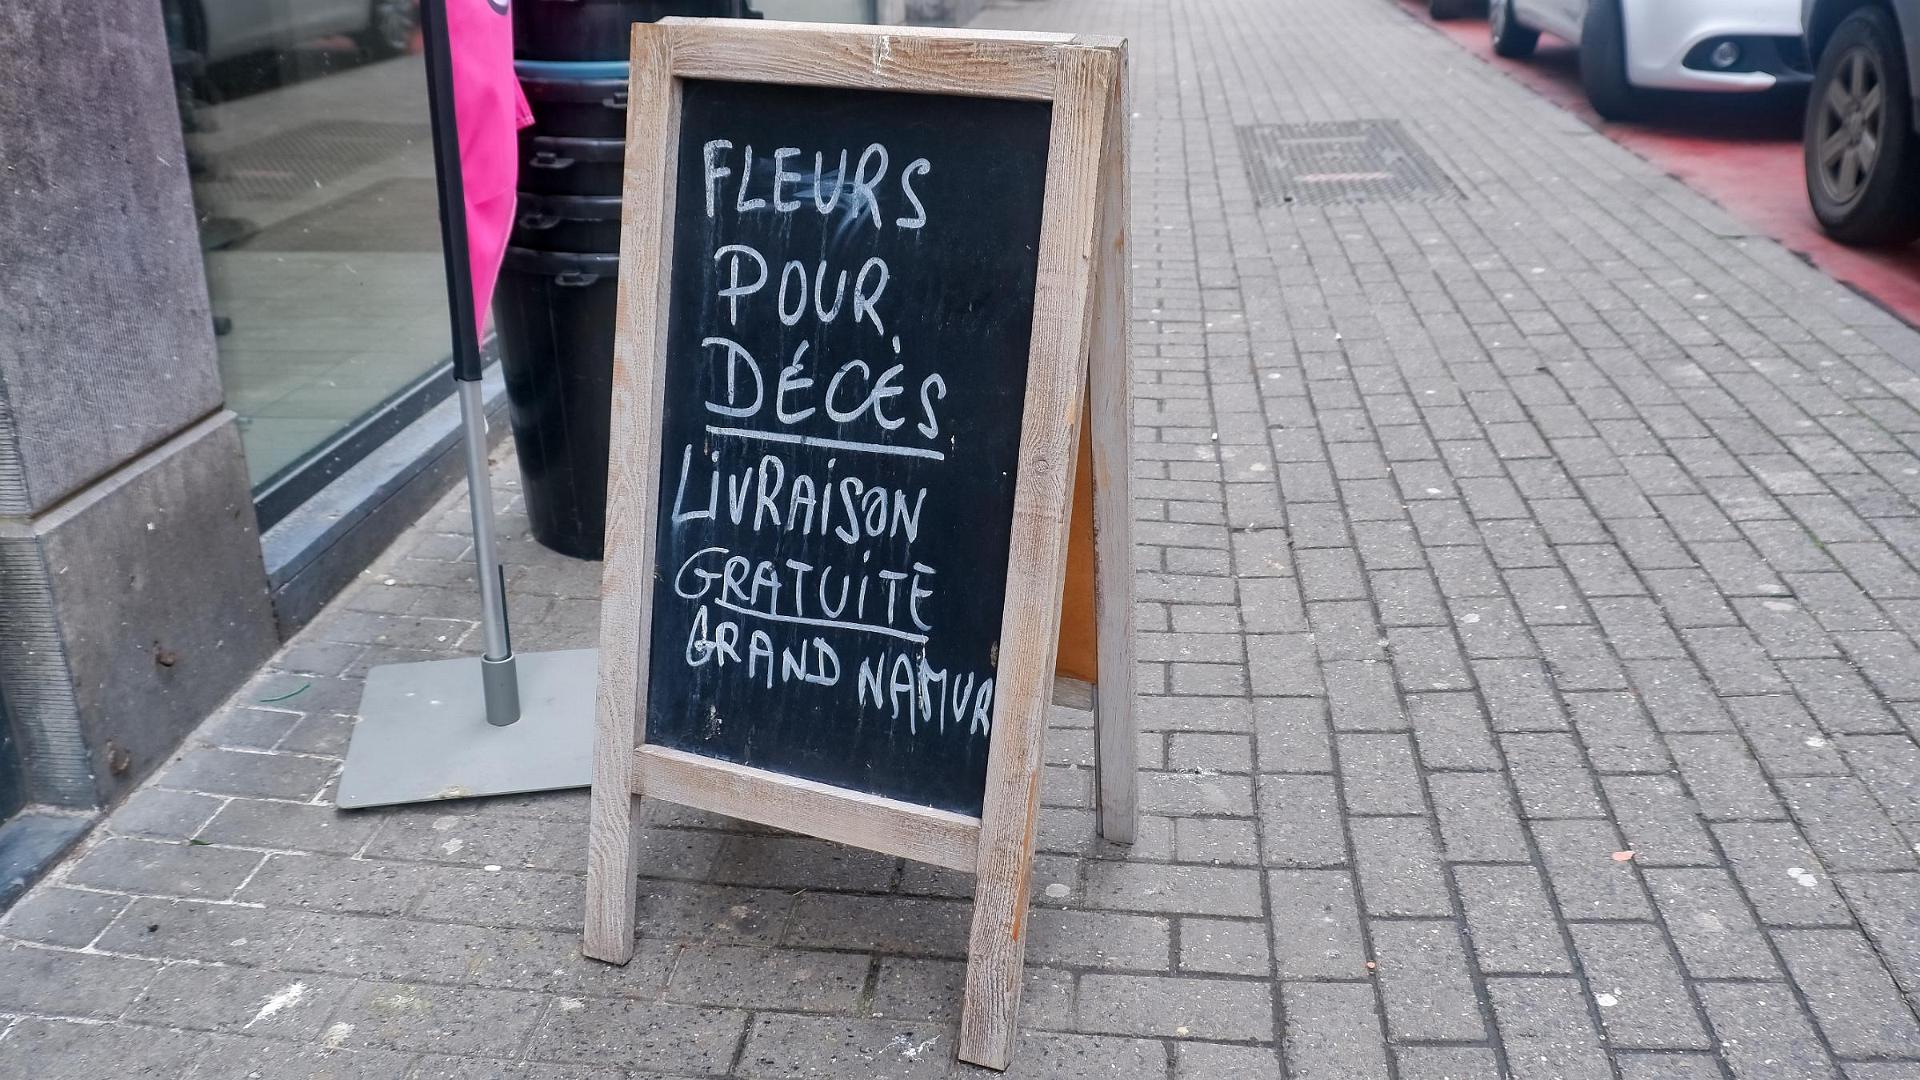 FLEURS
POUR
DÉCÈS
LIVRAISON
GRATUITE
GRAND NAMUR